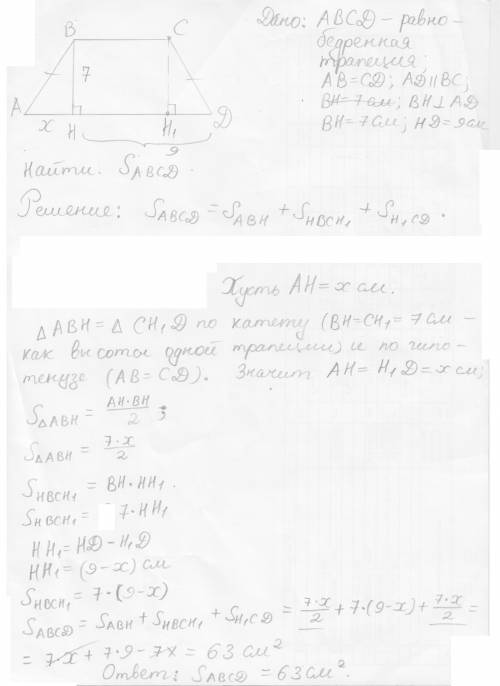 B C
7
A x H H₁ D
9
Дано: ABCD – равно-
бедренная
трапеция;
AB = CD; AD || BC;
BH = 7 см; BH ⊥ AD
BH = 7 см; HD = 9 см
Найти: S_ABCD.
Решение: S_ABCD = S_ABH + S_HBCH₁ + S_H₁CD.
Пусть AH = x см.
△ ABH = △ CH₁D по катету (BH = CH₁ = 7 см –
как высоты одной трапеции) и по гипо-
тенузе (AB = CD). Значит AH = H₁D = x см;
S_△ABH = AH·BH/2;
S_△ABH = 7·x/2
S_HBCH₁ = BH·HH₁.
S_HBCH₁ = 7·HH₁
HH₁ = HD – H₁D
HH₁ = (9 – x) см
S_HBCH₁ = 7·(9 – x)
S_ABCD = S_ABH + S_HBCH₁ + S_H₁CD = 7·x/2 + 7·(9–x) + 7·x/2 =
= 7·x + 7·9 – 7x = 63 см²
Ответ: S_ABCD = 63 см².